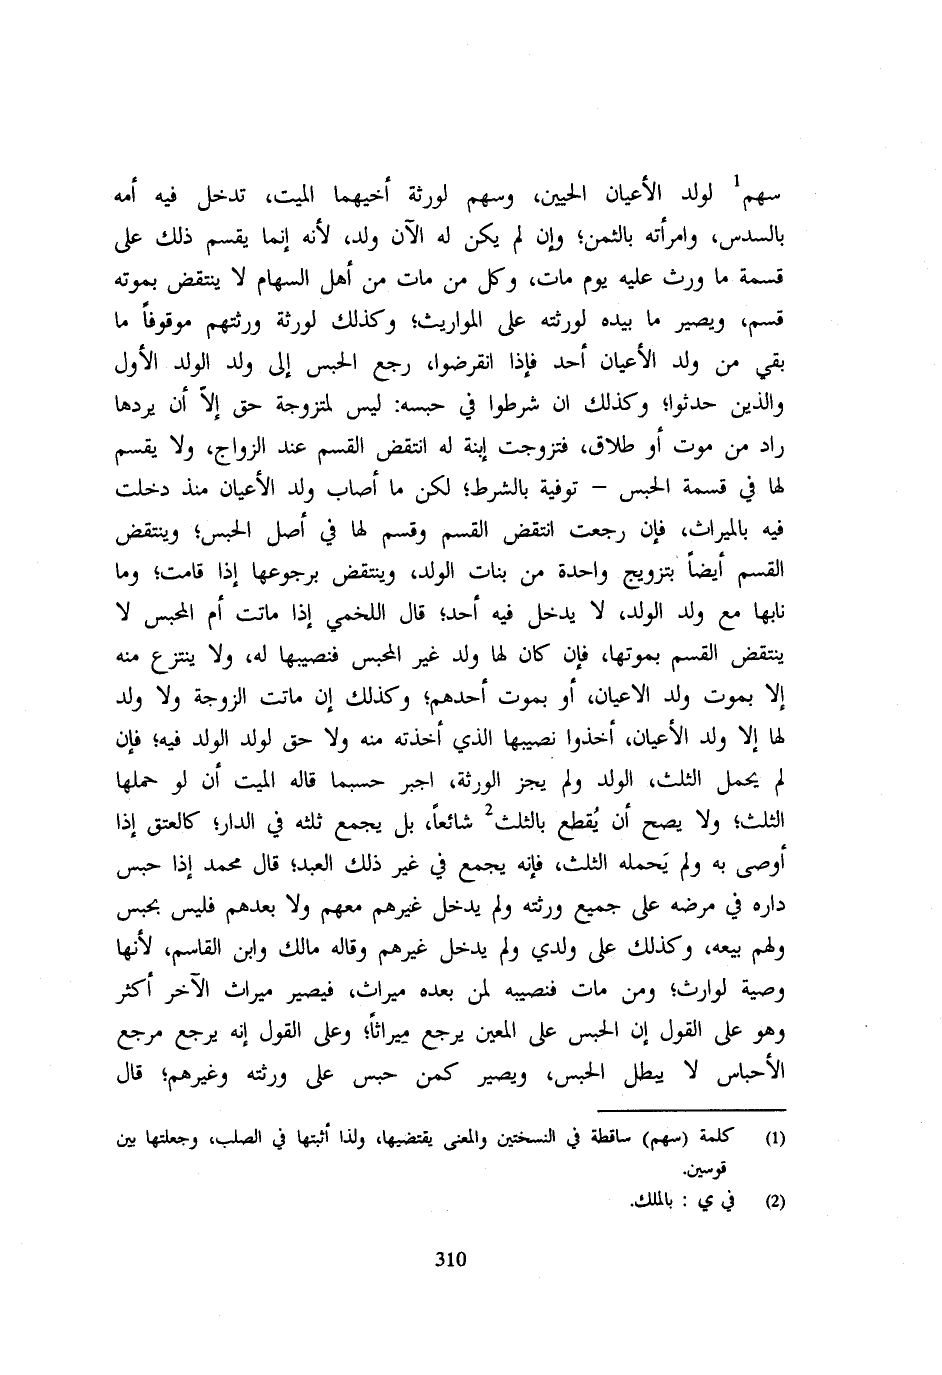 سهم1 لولد الأعيان الحيين، وسهم لورثة أخيهما الميت، تدخل فيه أمه
بالسدس، وامرأته بالثمن؛ وإن لم يكن له الآن ولد، لأنه إنما يقسم ذلك على
قسمة ما ورث عليه يوم مات، وكل من مات من أهل السهام لا ينتقض بموته
قسم، ويصير ما بيده لورثته على المواريث؛ وكذلك لورثة ورثتهم موقوفاً ما
بقي من ولد الأعيان أحد فإذا انقرضوا، رجع الحبس إلى ولد الولد الأول
والذين حدثوا؛ وكذلك ان شرطوا في حبسه: ليس لمتزوجة حق إلاّ أن يردها
راد من موت أو طلاق، فتزوجت إبنة له انتقض القسم عند الزواج، ولا يقسم
لها في قسمة الحبس – توفية بالشرط؛ لكن ما أصاب ولد الأعيان منذ دخلت
فيه بالميراث، فإن رجعت انتقض القسم وقسم لها في أصل الحبس؛ وينتقض
القسم أيضاً بتزويج واحدة من بنات الولد، وينتقض برجوعها إذا قامت؛ وما
نابها مع ولد الولد، لا يدخل فيه أحد؛ قال اللخمي إذا ماتت أم المحبس لا
ينتقض القسم بموتها، فإن كان لها ولد غير المحبس فنصيبها له، ولا ينتزع منه
إلا بموت ولد الاعيان، أو بموت أحدهم؛ وكذلك إن ماتت الزوجة ولا ولد
لها إلا ولد الأعيان، أخذوا نصيبها الذي أخذته منه ولا حق لولد الولد فيه؛ فإن
لم يحمل الثلث، الولد ولم يجز الورثة، اجبر حسبما قاله الميت أن لو حملها
الثلث؛ ولا يصح أن يُقطع بالثلث2 شائعاً، بل يجمع ثلثه في الدار؛ كالعتق إذا
أوصى به ولم يَحمله الثلث، فإنه يجمع في غير ذلك العبد؛ قال محمد إذا حبس
داره في مرضه على جميع ورثته ولم يدخل غيرهم معهم ولا بعدهم فليس بحبس
ولهم بيعه، وكذلك على ولدي ولم يدخل غيرهم وقاله مالك وابن القاسم، لأنها
وصية لوارث؛ ومن مات فنصيبه لمن بعده ميراث، فيصير ميراث الآخر أكثر
وهو على القول إن الحبس على المعين يرجع مِيراثاً؛ وعلى القول إنه يرجع مرجع
الأحباس لا يبطل الحبس، ويصير كمن حبس على ورثته وغيرهم؛ قال
(1) كلمة (سهم) ساقطة في النسختين والمعنى يقتضيها، ولذا أثبتها في الصلب، وجعلتها بين
قوسين.
(2) في ي : بالملك.
310